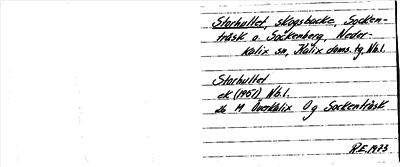 Storhultet, skogsbacke, Socken-
träsk o. Sockenberg, Neder-
kalix sn, Kalix doms. tg Nb.l.
Storhultet
ek (1961), Nb.l.
M Överkalix Og Sockenträsk
R.E. 1973